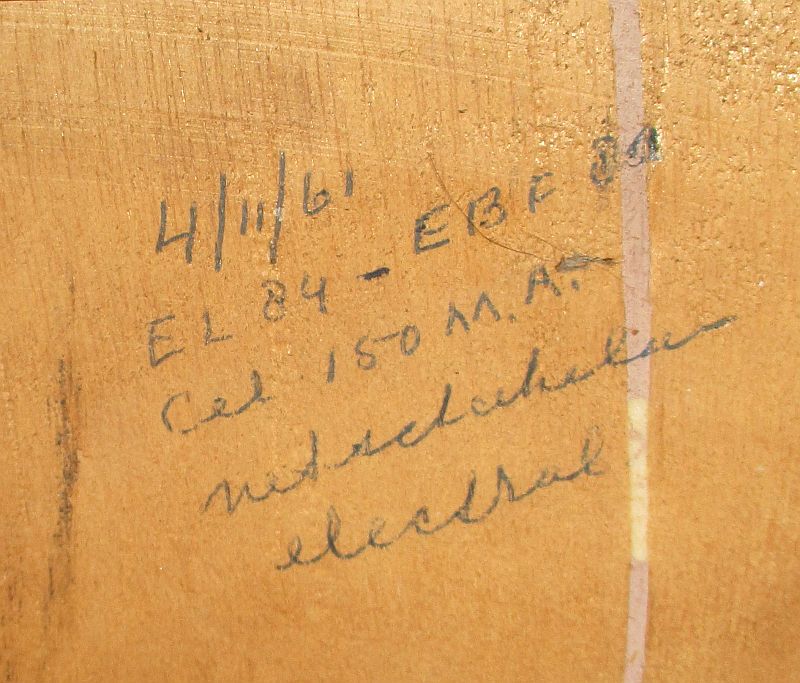 4/11/61
EL 84 - EBF 89
Cel 150 M.A.
netschakelaar
electral